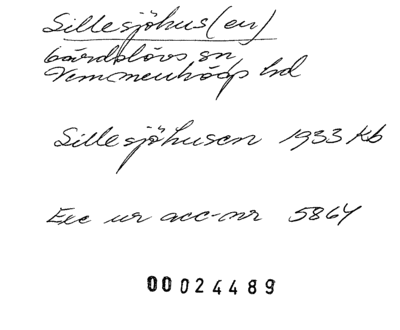 Sillesjöhus (en)
Gärdslövs sn
Vemmenhögs hd
Sillesjöhusen 1933 Kb
Exc ur acc-nr 5864
00024489